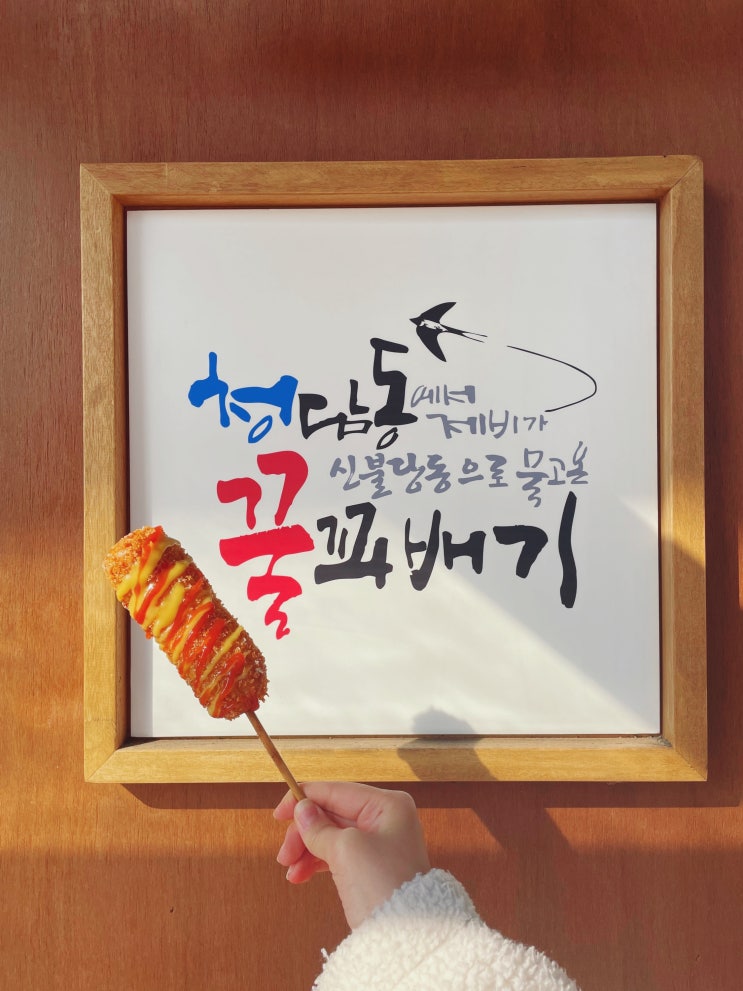 청담동에서
제비가
신불당동으로 물고온
꿀꽈배기